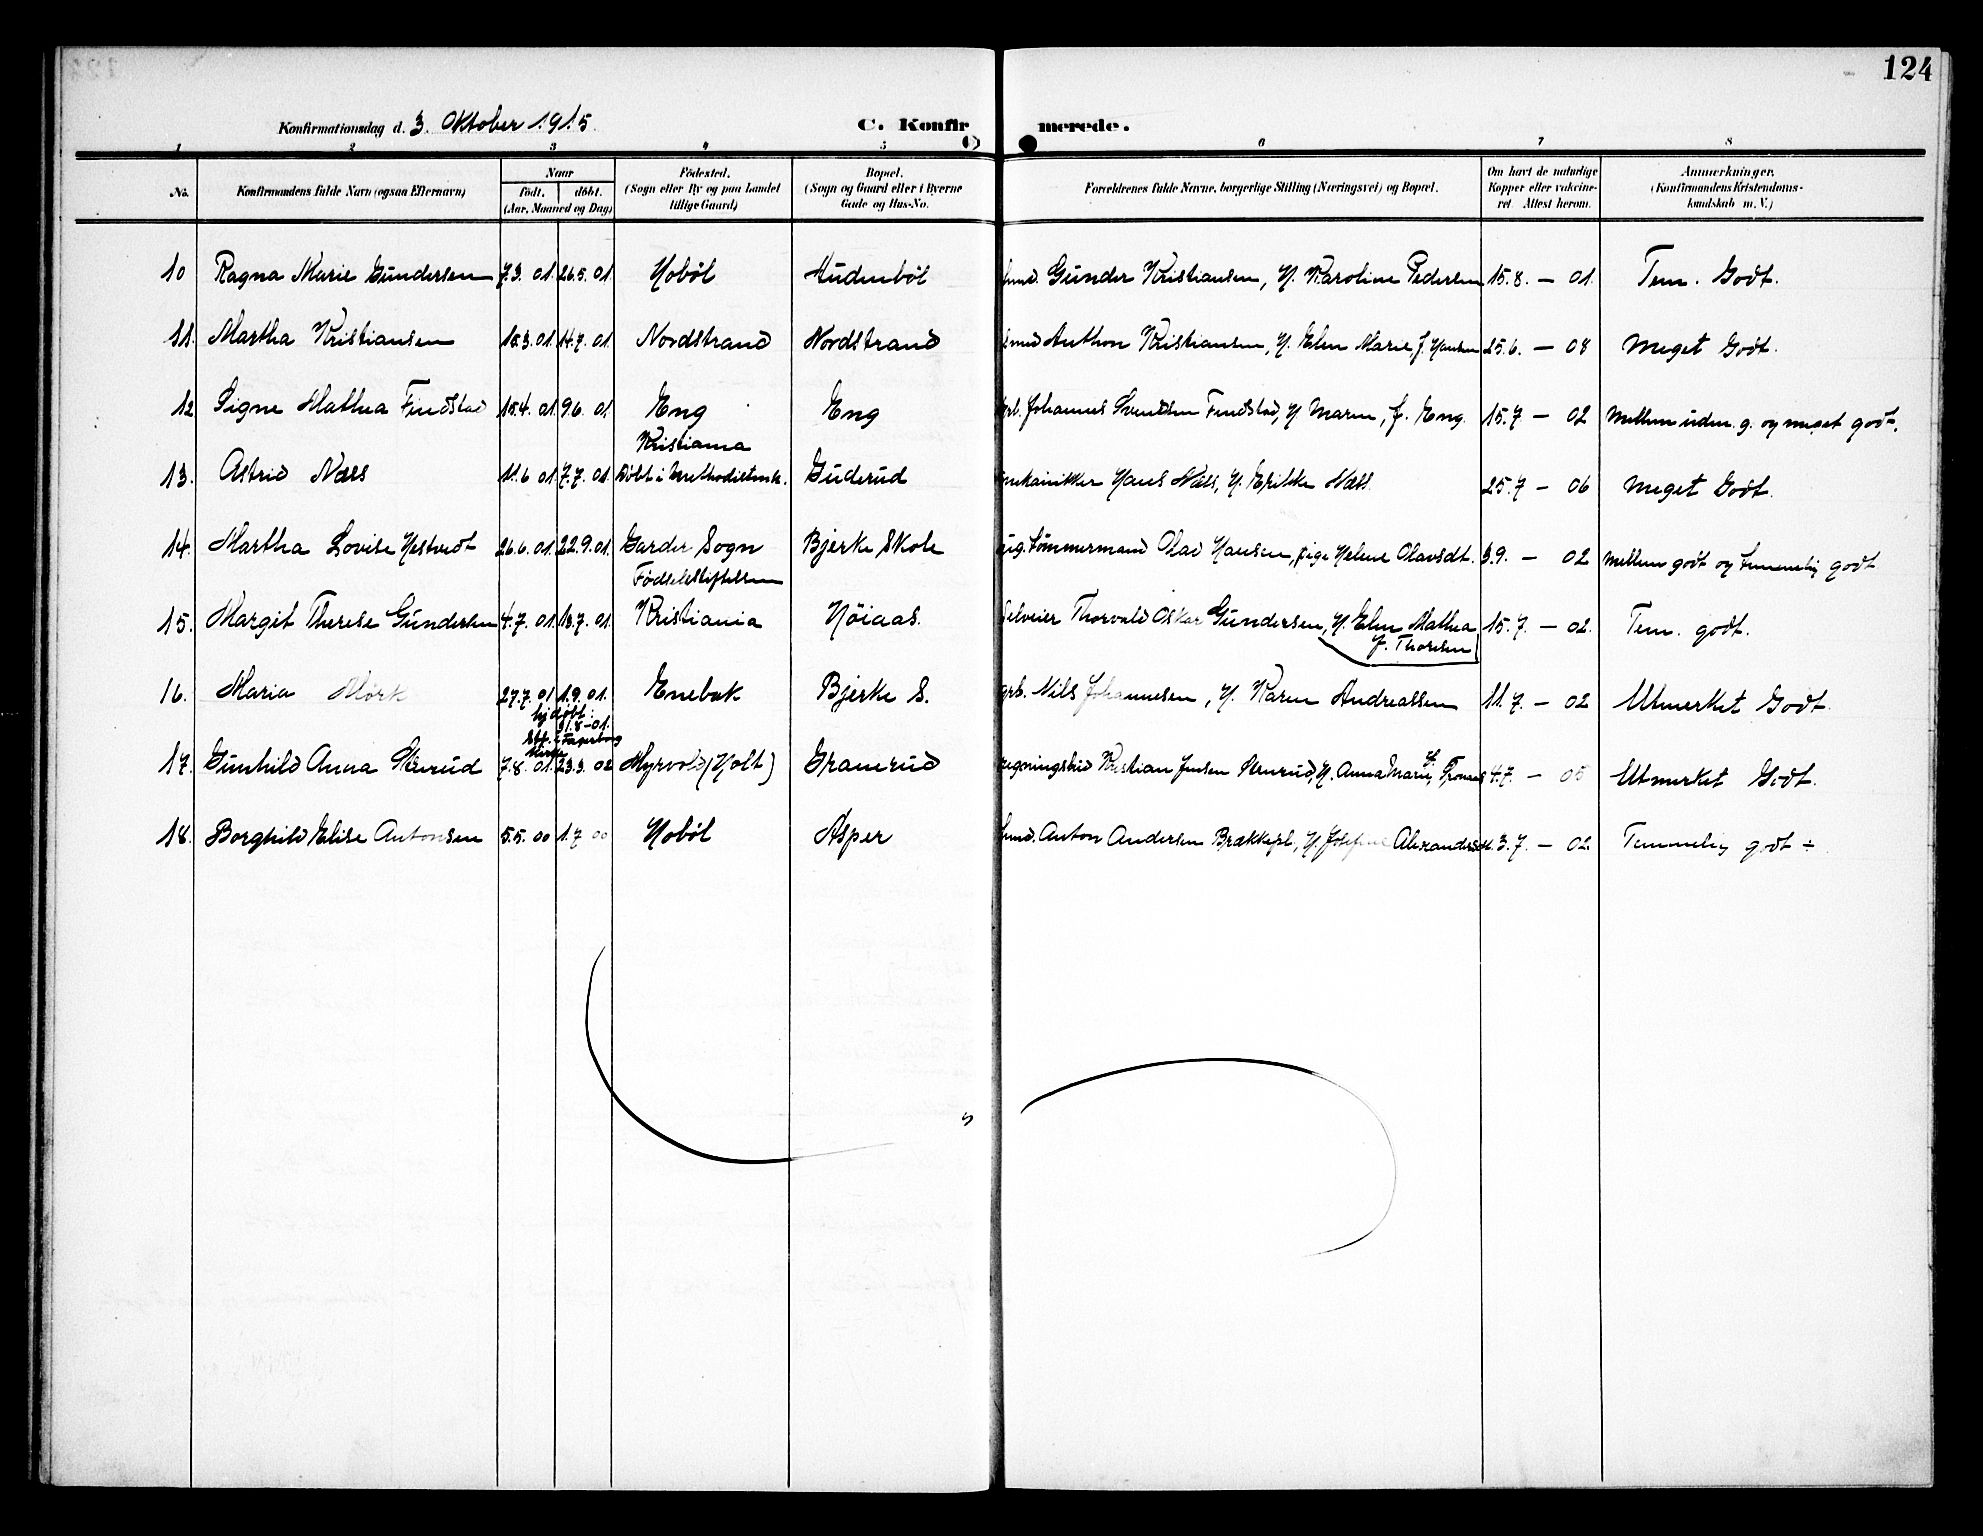 124
Konfirmationsdag d. 3. Oktober 1915. C. Konfirmerede.
1 2 3 4 5 6 7 8
No. Konfirmandens fulde Navn (ogsaa Efternavn) Naar født. døbt. (Aar, Maaned og Dag) Fødested. (Sogn eller By og paa Landet tillige Gaard) Bopæl. (Sogn og Gaard eller i Byerne Gade og Hus-No. Forældrenes fulde Navne, borgerlige Stilling (Næringsvei) og Bopæl. Om havt de naturlige Kopper eller vakcineret. Attest herom. Anmerkninger. (Konfirmandens Kristendomskundskab m. V.)
10 Ragna Marie Gundersen 7.3. 01. 26.5. 01. Hobøl Hudenbøl Gunder Kristiansen, H. Karoline Pedersen 15.8. – 01. Tem. Godt.
11. Martha Kristiansen 18.3.01. 14.7. 01. Nordstrand Nordstrand Anthon Kristiansen, H. Elen Marie, f. Hansen 25.6. – 08 Meget Godt.
12 Signe Mathea Findstad 15.4. 01. 9.6. 01. Eng Eng Johannes Svendsen Findstad, H Maren, f. Eng. 15.7 – 02 Mellem uden. g. og meget godt.
13. Astrid Næss 11.6 01. 7.7. 01. Kristiania Døbt i Methodistmk. Guderud Mekanikker Hans Næss, H. Erikke Næss. 25.7 – 06 Meget Godt.
14. Martha Lovise Hestvedt 26.6.01. 22.9.01. Garder Sogn Bjerke Skole Tømmermand Olad Hansen, pige Helene Olavsdt. 3.9. – 02 Mellem godt og temmelig godt
15. Margit Therese Gundersen 4.7. 01. 13.7. 01. Fødselsstiftelsen Kristiania Høiaas. Selveier Thorvald Oskar Gundersen, H. Elen Mathea f. Thoresen 15.7. – 02. Tem. godt.
16. Maria Mørk 27.7. 01 1.9. 01. Enebak Bjerke S. grb. Nils Johannesen, H. Karen Andreassen 11.7. – 02 Utmerket Godt.
hjdøbt: 31.8–01. Stf. i Fagerborg Kirke
17. Gunhild Anna Skuerud 7.8. 01. 23.3. 02 Myrvold (Holt) Granerud Kristian Jensen Skuerud, H. Anna Marie 4.7. – 05 Utmerket Godt.
18. Borghild Elise Antonsen 5.5. 00 1.7 00 Hobøl Asper Anton Andersen Brækkepl., H. Josefine Alexandersdt. 3.7. – 02. Temmelig godt ÷